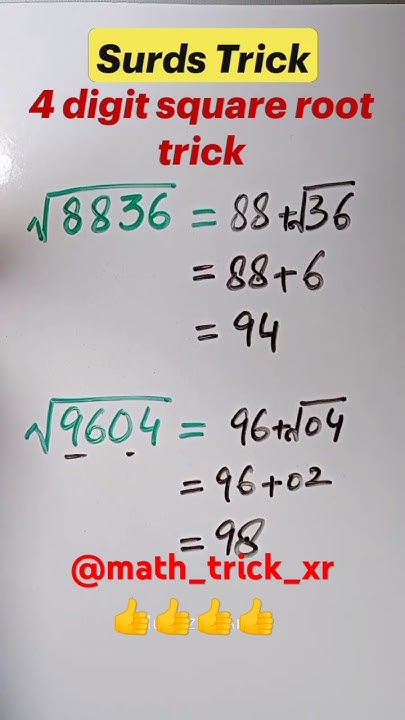 Surds Trick
4 digit square root
trick
√8836 = 88+√36
= 88+6
= 94
√9604 = 96+√04
= 96+02
= 98
@math_trick_xr
👍👍👍👍